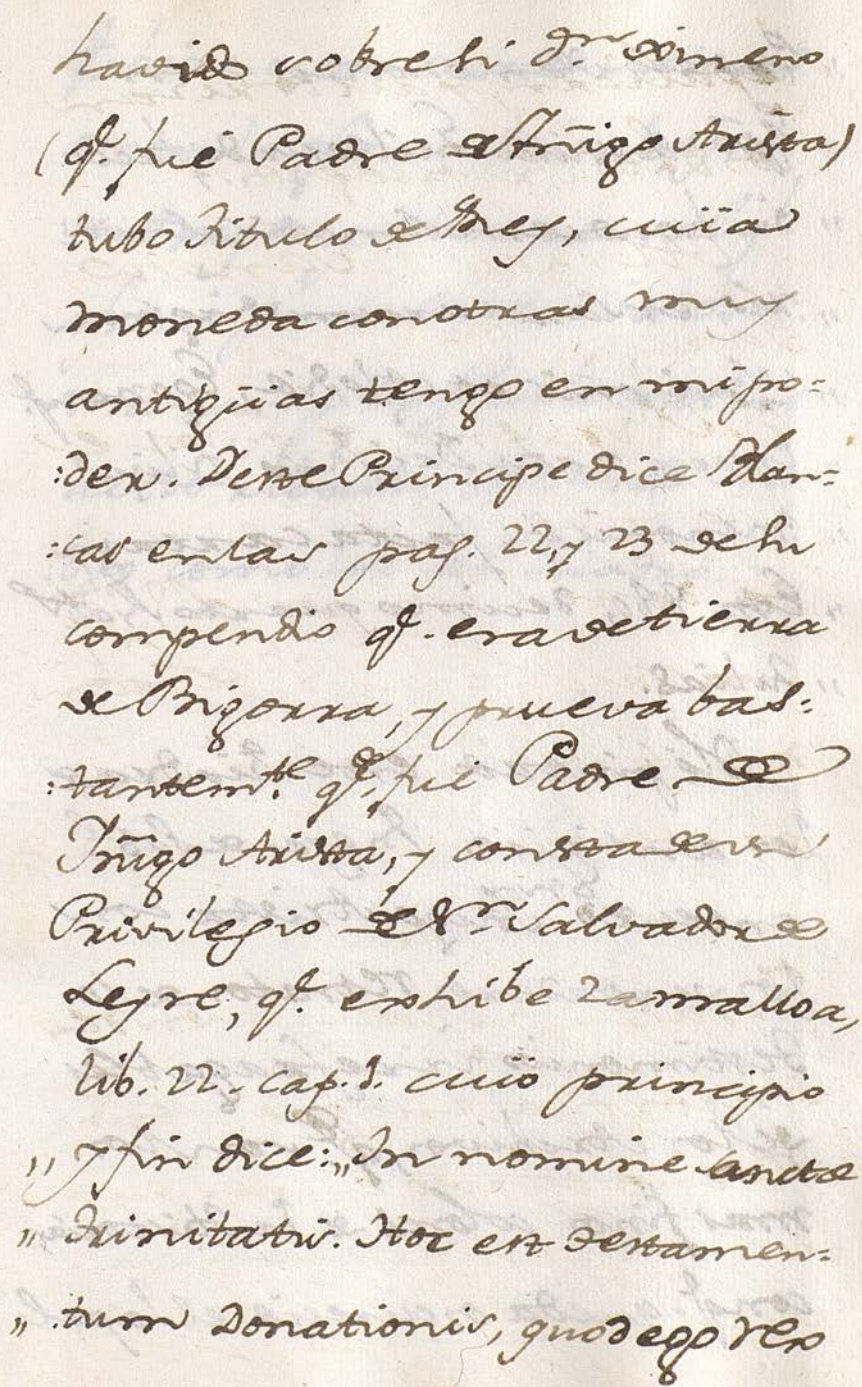 havido sobre si D.n Ximeno
(q.e fué Padre de Iñigo Arista)
tubo titulo de Rey, cuia
moneda con otras muy
antigüas tengo en mi po=
:der. Deste Principe dice Blan=
:cas en las pag. 22, y 23 de su
compendio q.e era de tierra
de Bigorra, y prueva bas=
:tantem.te q.e fue Padre de
Iñigo Arista, y consta de un
Privilegio de S.n Salvador de
Leyre, q.e exhibe Zamalloa,
lib. 22. cap. 1. cuio principio
„ y fin dice: „ In nomine Sanctæ
„ Trinitatis. Hoc est testamen=
„ :tum Donationis, quod ego Rex